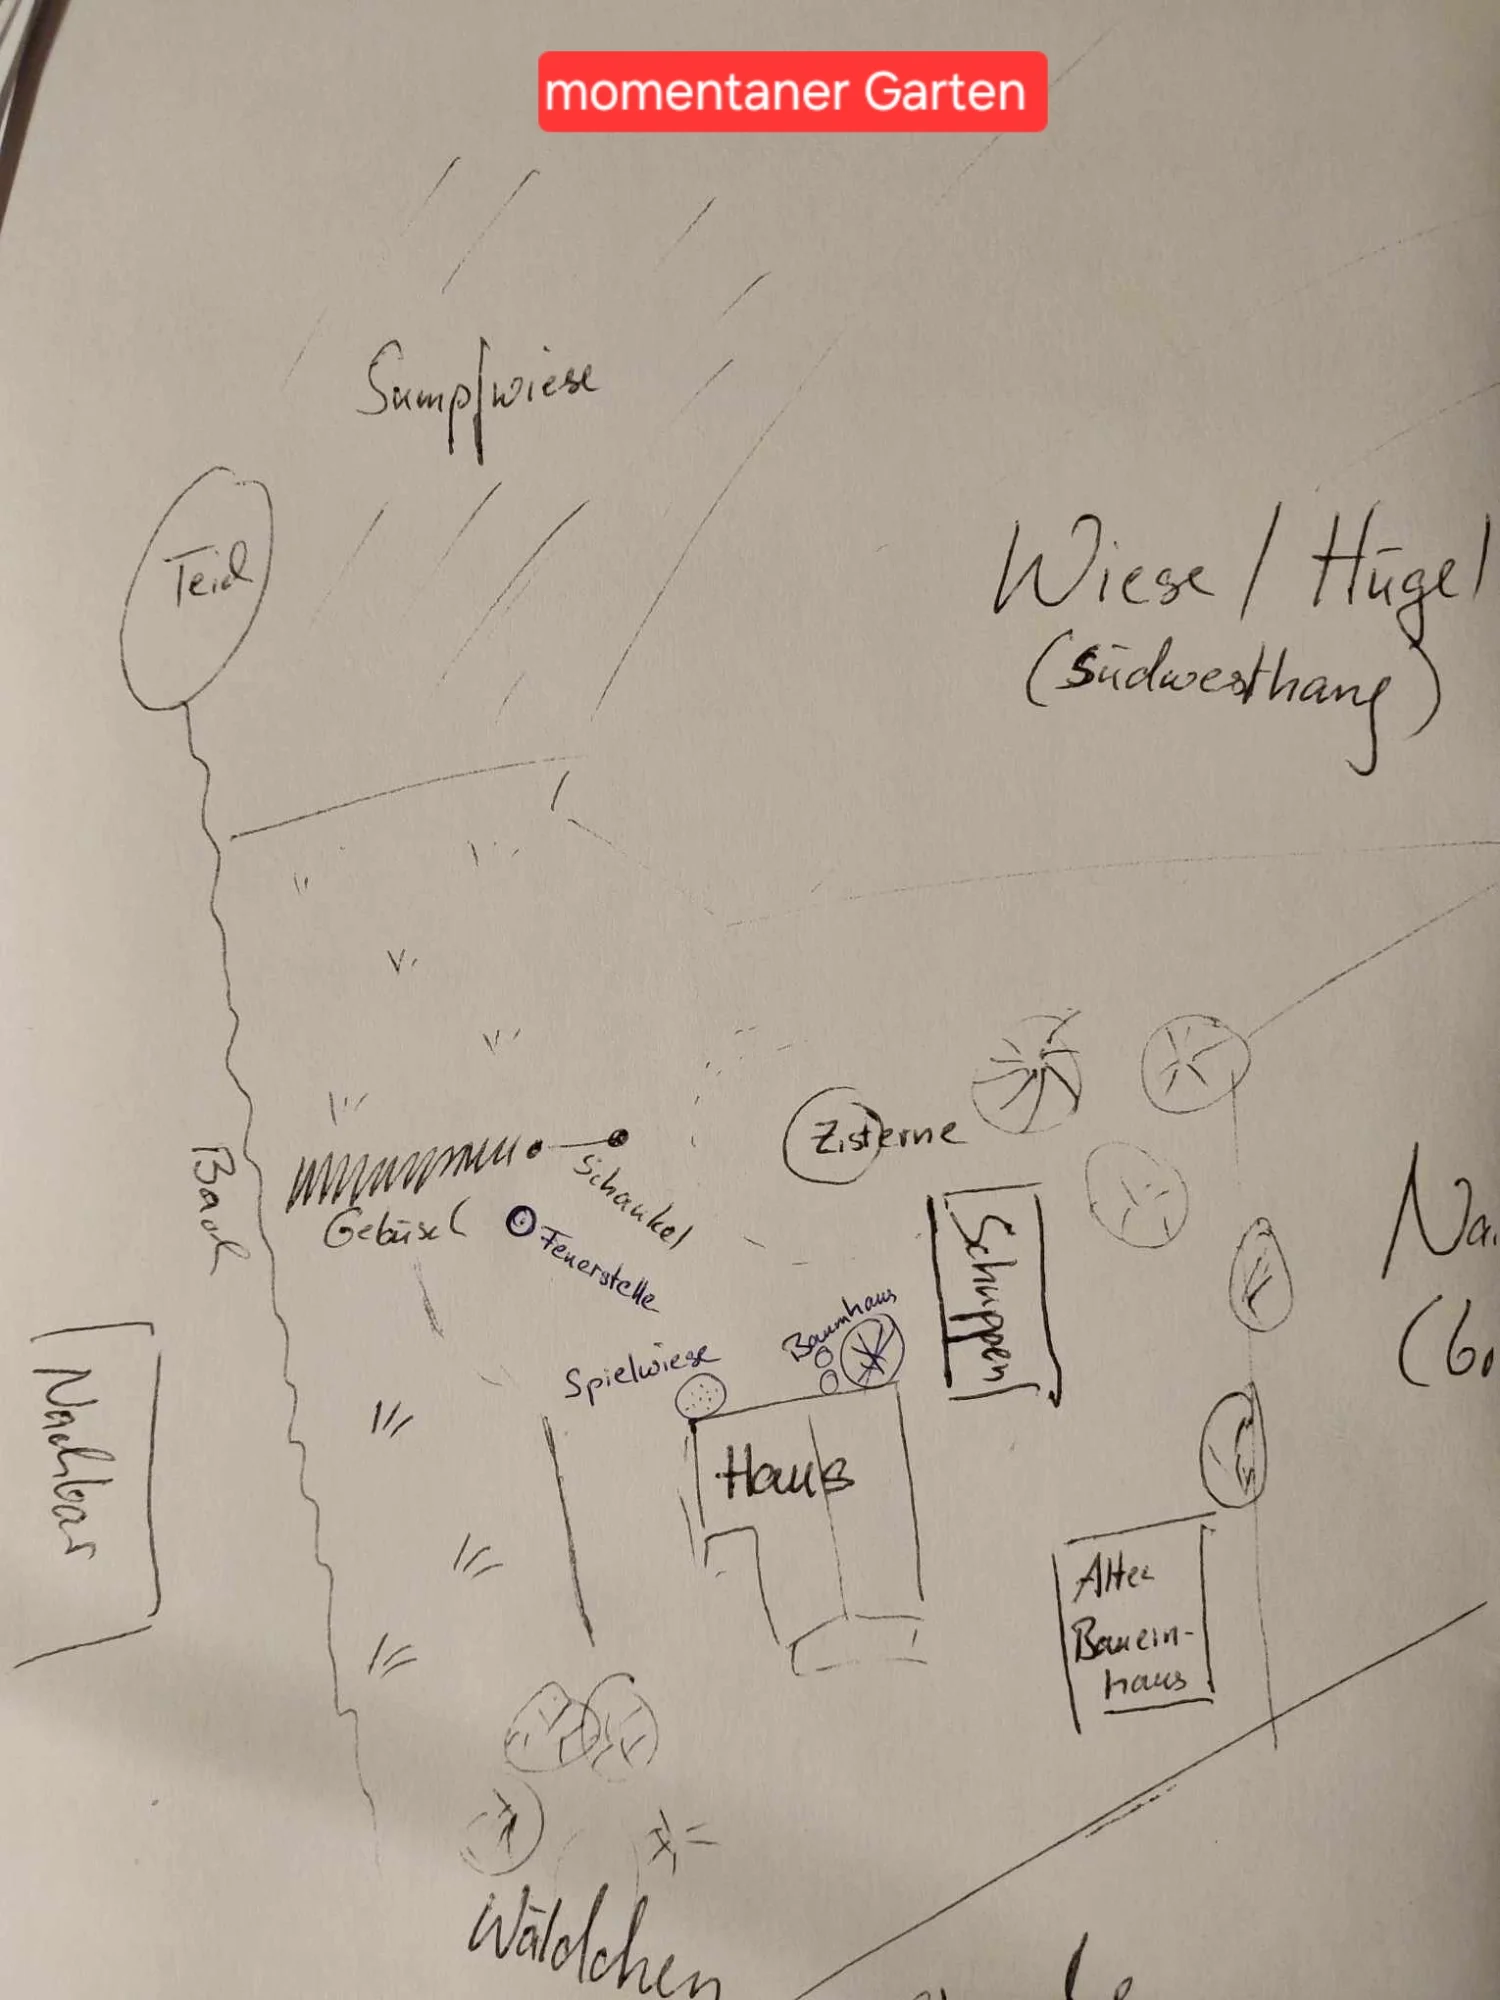 momentaner Garten
Sumpfwiese
Teich
Wiese / Hügel
(Südwesthang)
Bach
Gebüsch
Schaukel
Feuerstelle
Zisterne
Schuppen
Baumhaus
Spielwiese
Haus
Nachbar
Altes
Bauern-
haus
Wäldchen